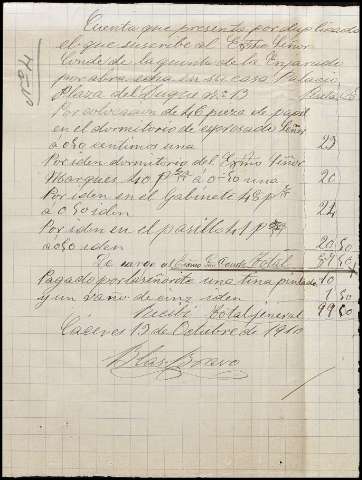 Nº 4
Cuenta que presenta por duplicado
el que suscribe al Exmo Señor
Conde de la quinta de la Enjarada
por obra echa en su casa Palacio
Plaza del Duque nº 13
Por colocacion de 46 pieza de papel
en el dormitorio de espresado Señor
á 0,50 centimos una 23
Por iden dormitorio del Exmo Señor
Marques 40 pzas á 0-50 una 20
Por iden en el Gabinete 48 pzas
á 0,50 iden 24
Por iden en el pasillo 41 pzas
á 0,50 iden 20 50
De cargo al Exmo Sr Conde total 87 50
Pagado por la señorita una tina pintada 10
y un vaño de cinz iden 1 50
Recibi total general 99 00
Cáceres 13 de Octubre de 1910
Blas Bravo